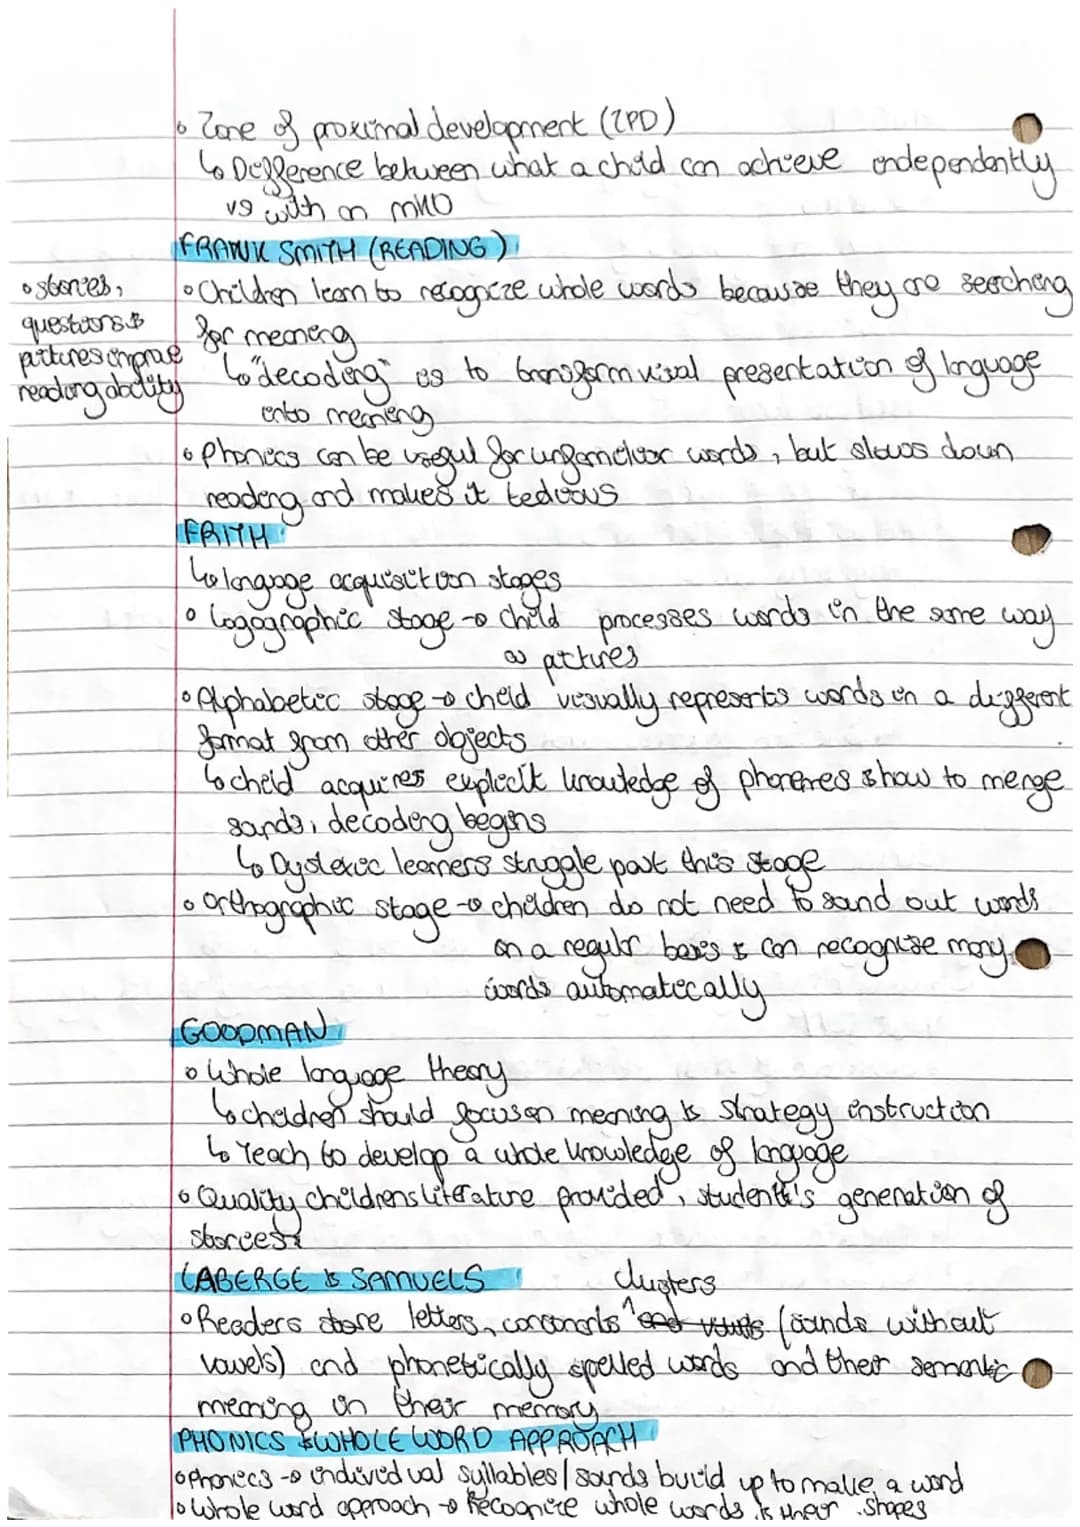 • Zone of proximal development (ZPD)
↳ Difference between what a child can achieve independently
vs with an MKO
FRANK SMITH (READING)
• stories,
questions &
pictures improve
reading ability
• Children learn to recognize whole words because they are searching
for meaning
↳ "decoding" is to transform visal presentation of language
into meaning
• Phonics can be useful for unfamiliar words, but slows down
reading and makes it tedious
FRITH
↳ language acquisition stages
• Logographic stage → child processes words in the same way
as pictures
• Alphabetic stage → child visually represents words in a different
format from other objects
↳ child acquires explicit knowledge of phonemes & how to merge
sounds, decoding begins
↳ Dyslexic learners struggle past this stage
• Orthographic stage → children do not need to sound out words
on a regular basis & can recognise many
words automatically
GOODMAN
• Whole language theory
↳ children should focus on meaning & strategy instruction
↳ Teach to develop a whole knowledge of language
• Quality childrens literature provided, student's generation of
stories
LABERGE & SAMUELS
clusters
• Readers store letters, consonants and vowels (sounds without
vowels) and phonetically spelled words and their semantic
meaning in their memory
PHONICS & WHOLE WORD APPROACH
• Phonics → individual syllables/sounds build up to make a word
• Whole word approach → Recognize whole words & their shapes